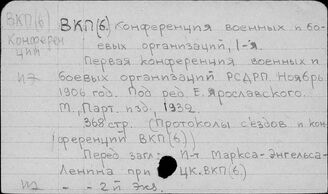 ВКП(б) ВКП(б) Конференция военных и бо-
Конферен евых организаций, 1-я.
ции Первая конференция военных и
И2 боевых организаций РСДРП. Ноябрь
1906 год. Под ред. Е. Ярославского.
М., Парт. изд., 1932
368 стр. (Протоколы с'ездов и кон
ференций ВКП(б))
Перед загл: И-т Маркса-Энгельса-
Ленина при ЦК.ВКП(б)
И2 - - 2й экз.